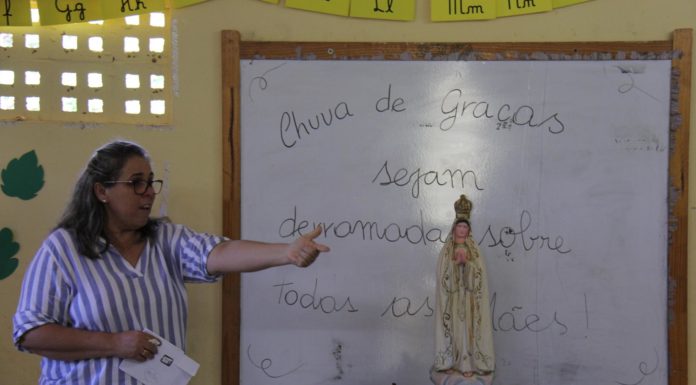 f Gg Hh Ll Mm Nn
Chuva de Graças
sejam
derramadas sobre
Todas as Mães!